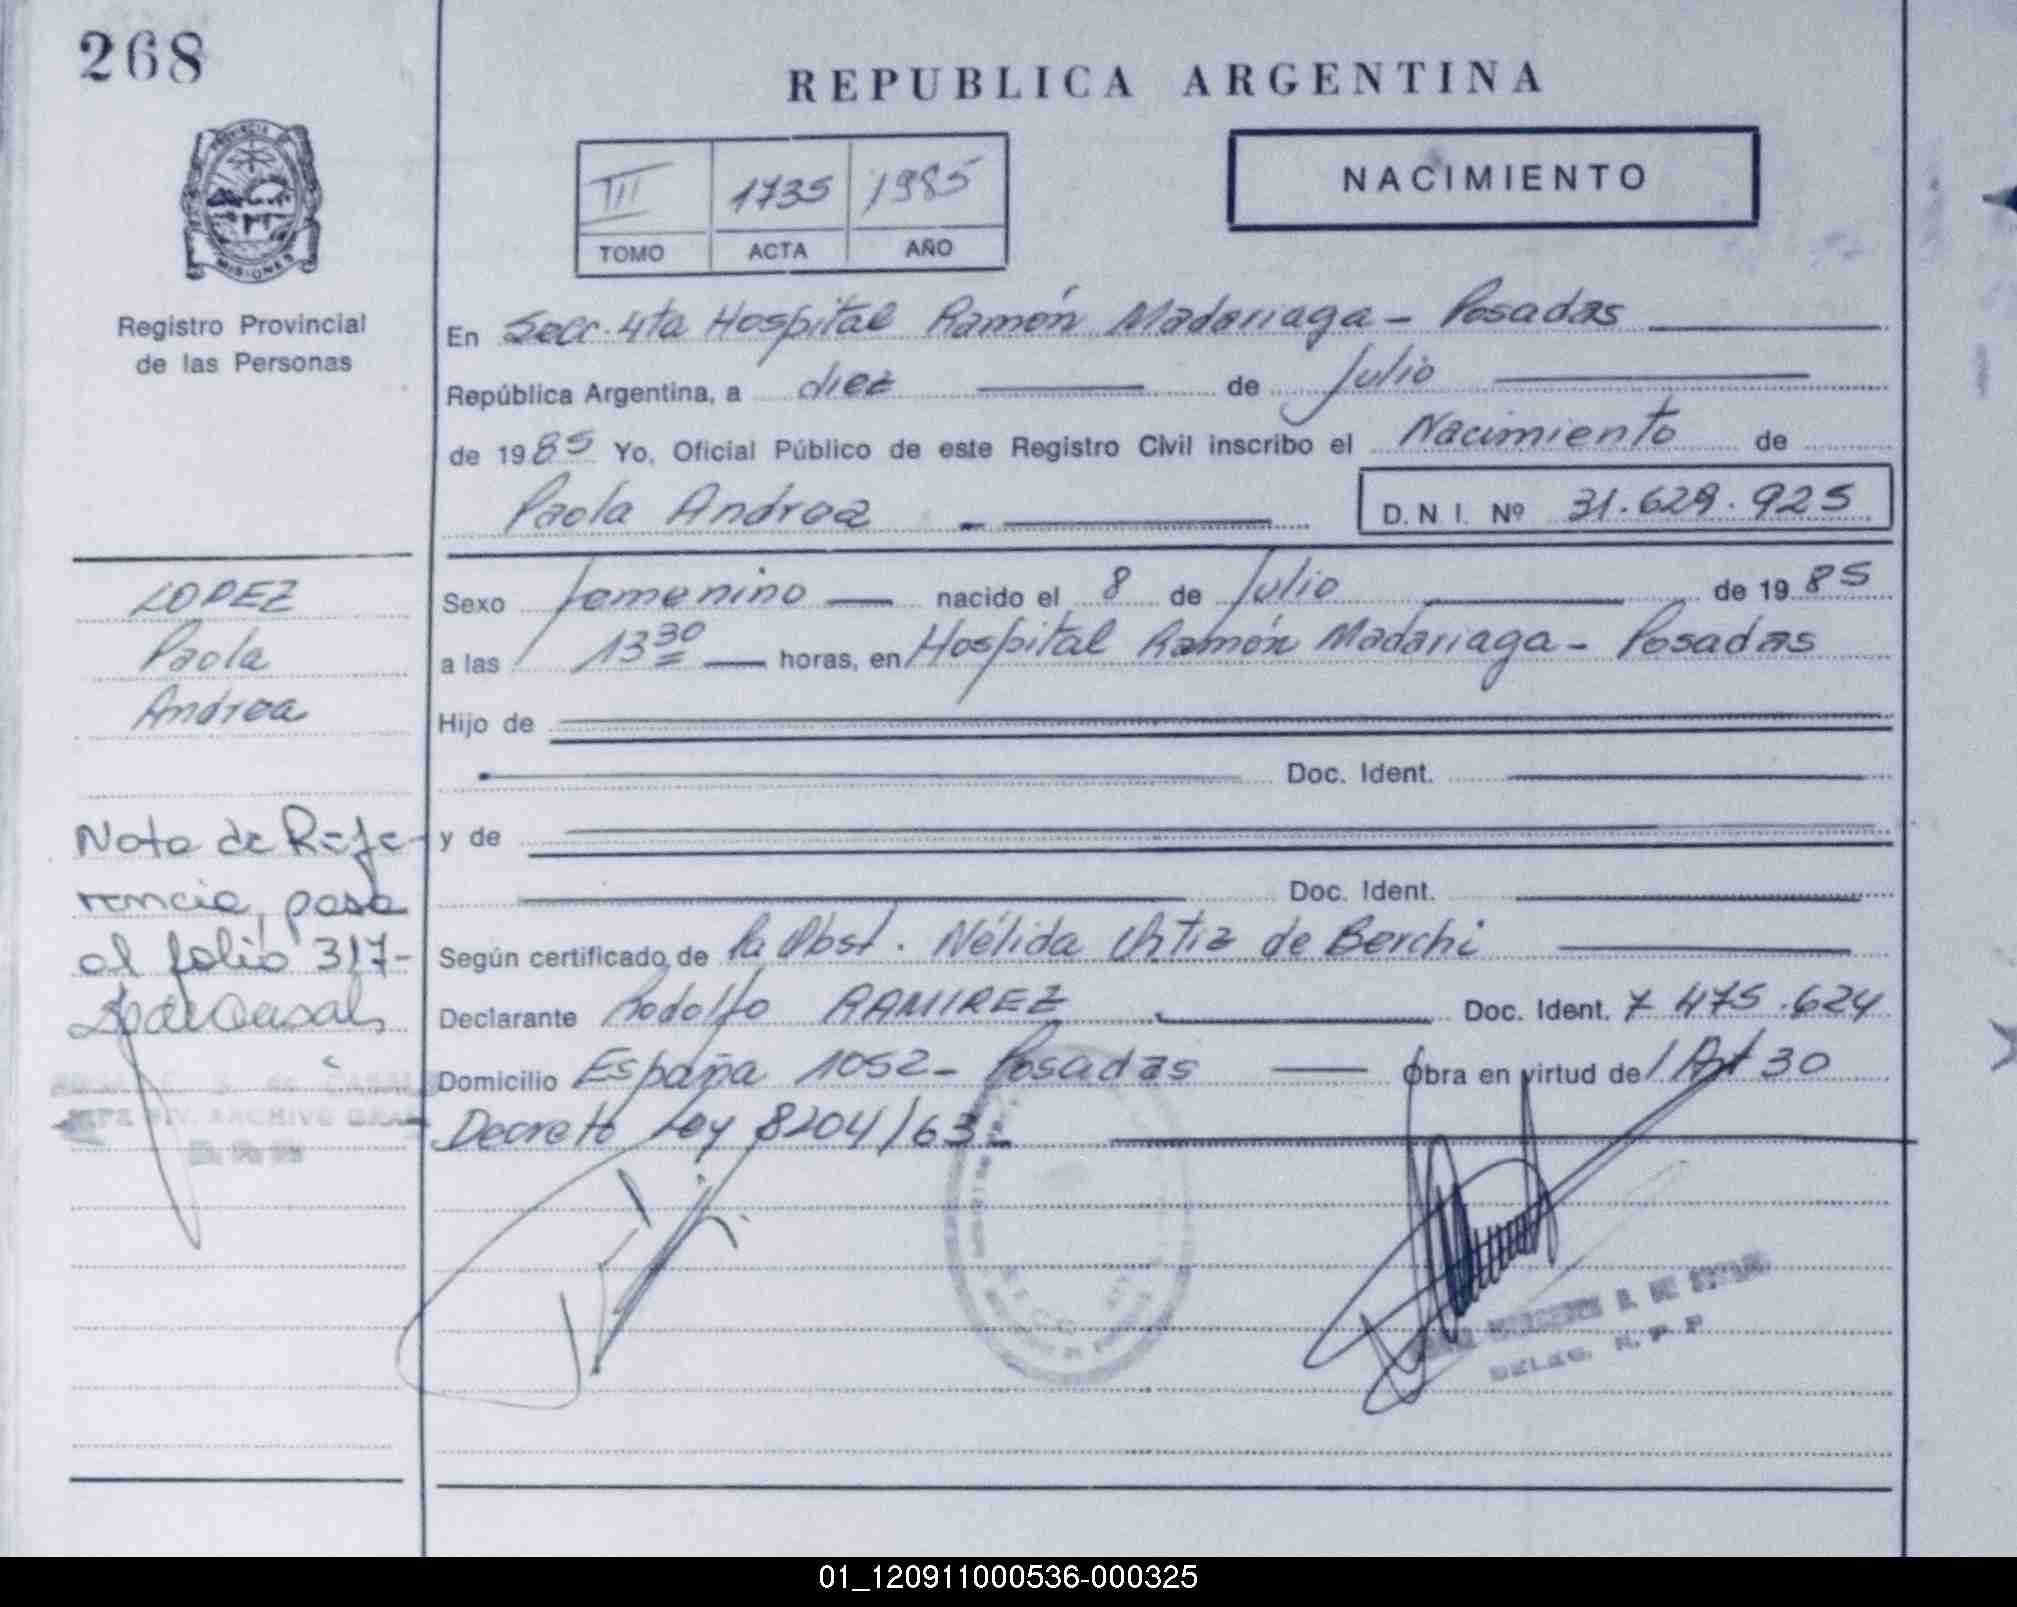 268
REPUBLICA ARGENTINA
PROVINCIA DE
MISIONES
Registro Provincial
de las Personas
III 1735 1985
TOMO ACTA AÑO
NACIMIENTO
En Secc. 4ta Hospital Ramón Madariaga - Posadas
República Argentina, a diez de Julio
de 1985 Yo, Oficial Público de este Registro Civil inscribo el Nacimiento de
Paola Andrea D. N. I. Nº 31.629.925
LOPEZ
Paola
Andrea
Sexo femenino nacido el 8 de Julio de 1985
a las 13 30 horas, en Hospital Ramón Madariaga - Posadas
Hijo de
Doc. Ident.
y de
Doc. Ident.
Nota de Refe-
rencia, pasa
al folio 317-
Según certificado de la Obst. Nélida Ortiz de Berchi
Declarante Rodolfo RAMIREZ Doc. Ident. 7 475.624
Domicilio España 1052 - Posadas Obra en virtud de l Art 30
Decreto Ley 8204/63 -
DE CASALS
JEFE DIV. ARCHIVO GRAL
DELEG. R. P. P
01_120911000536-000325